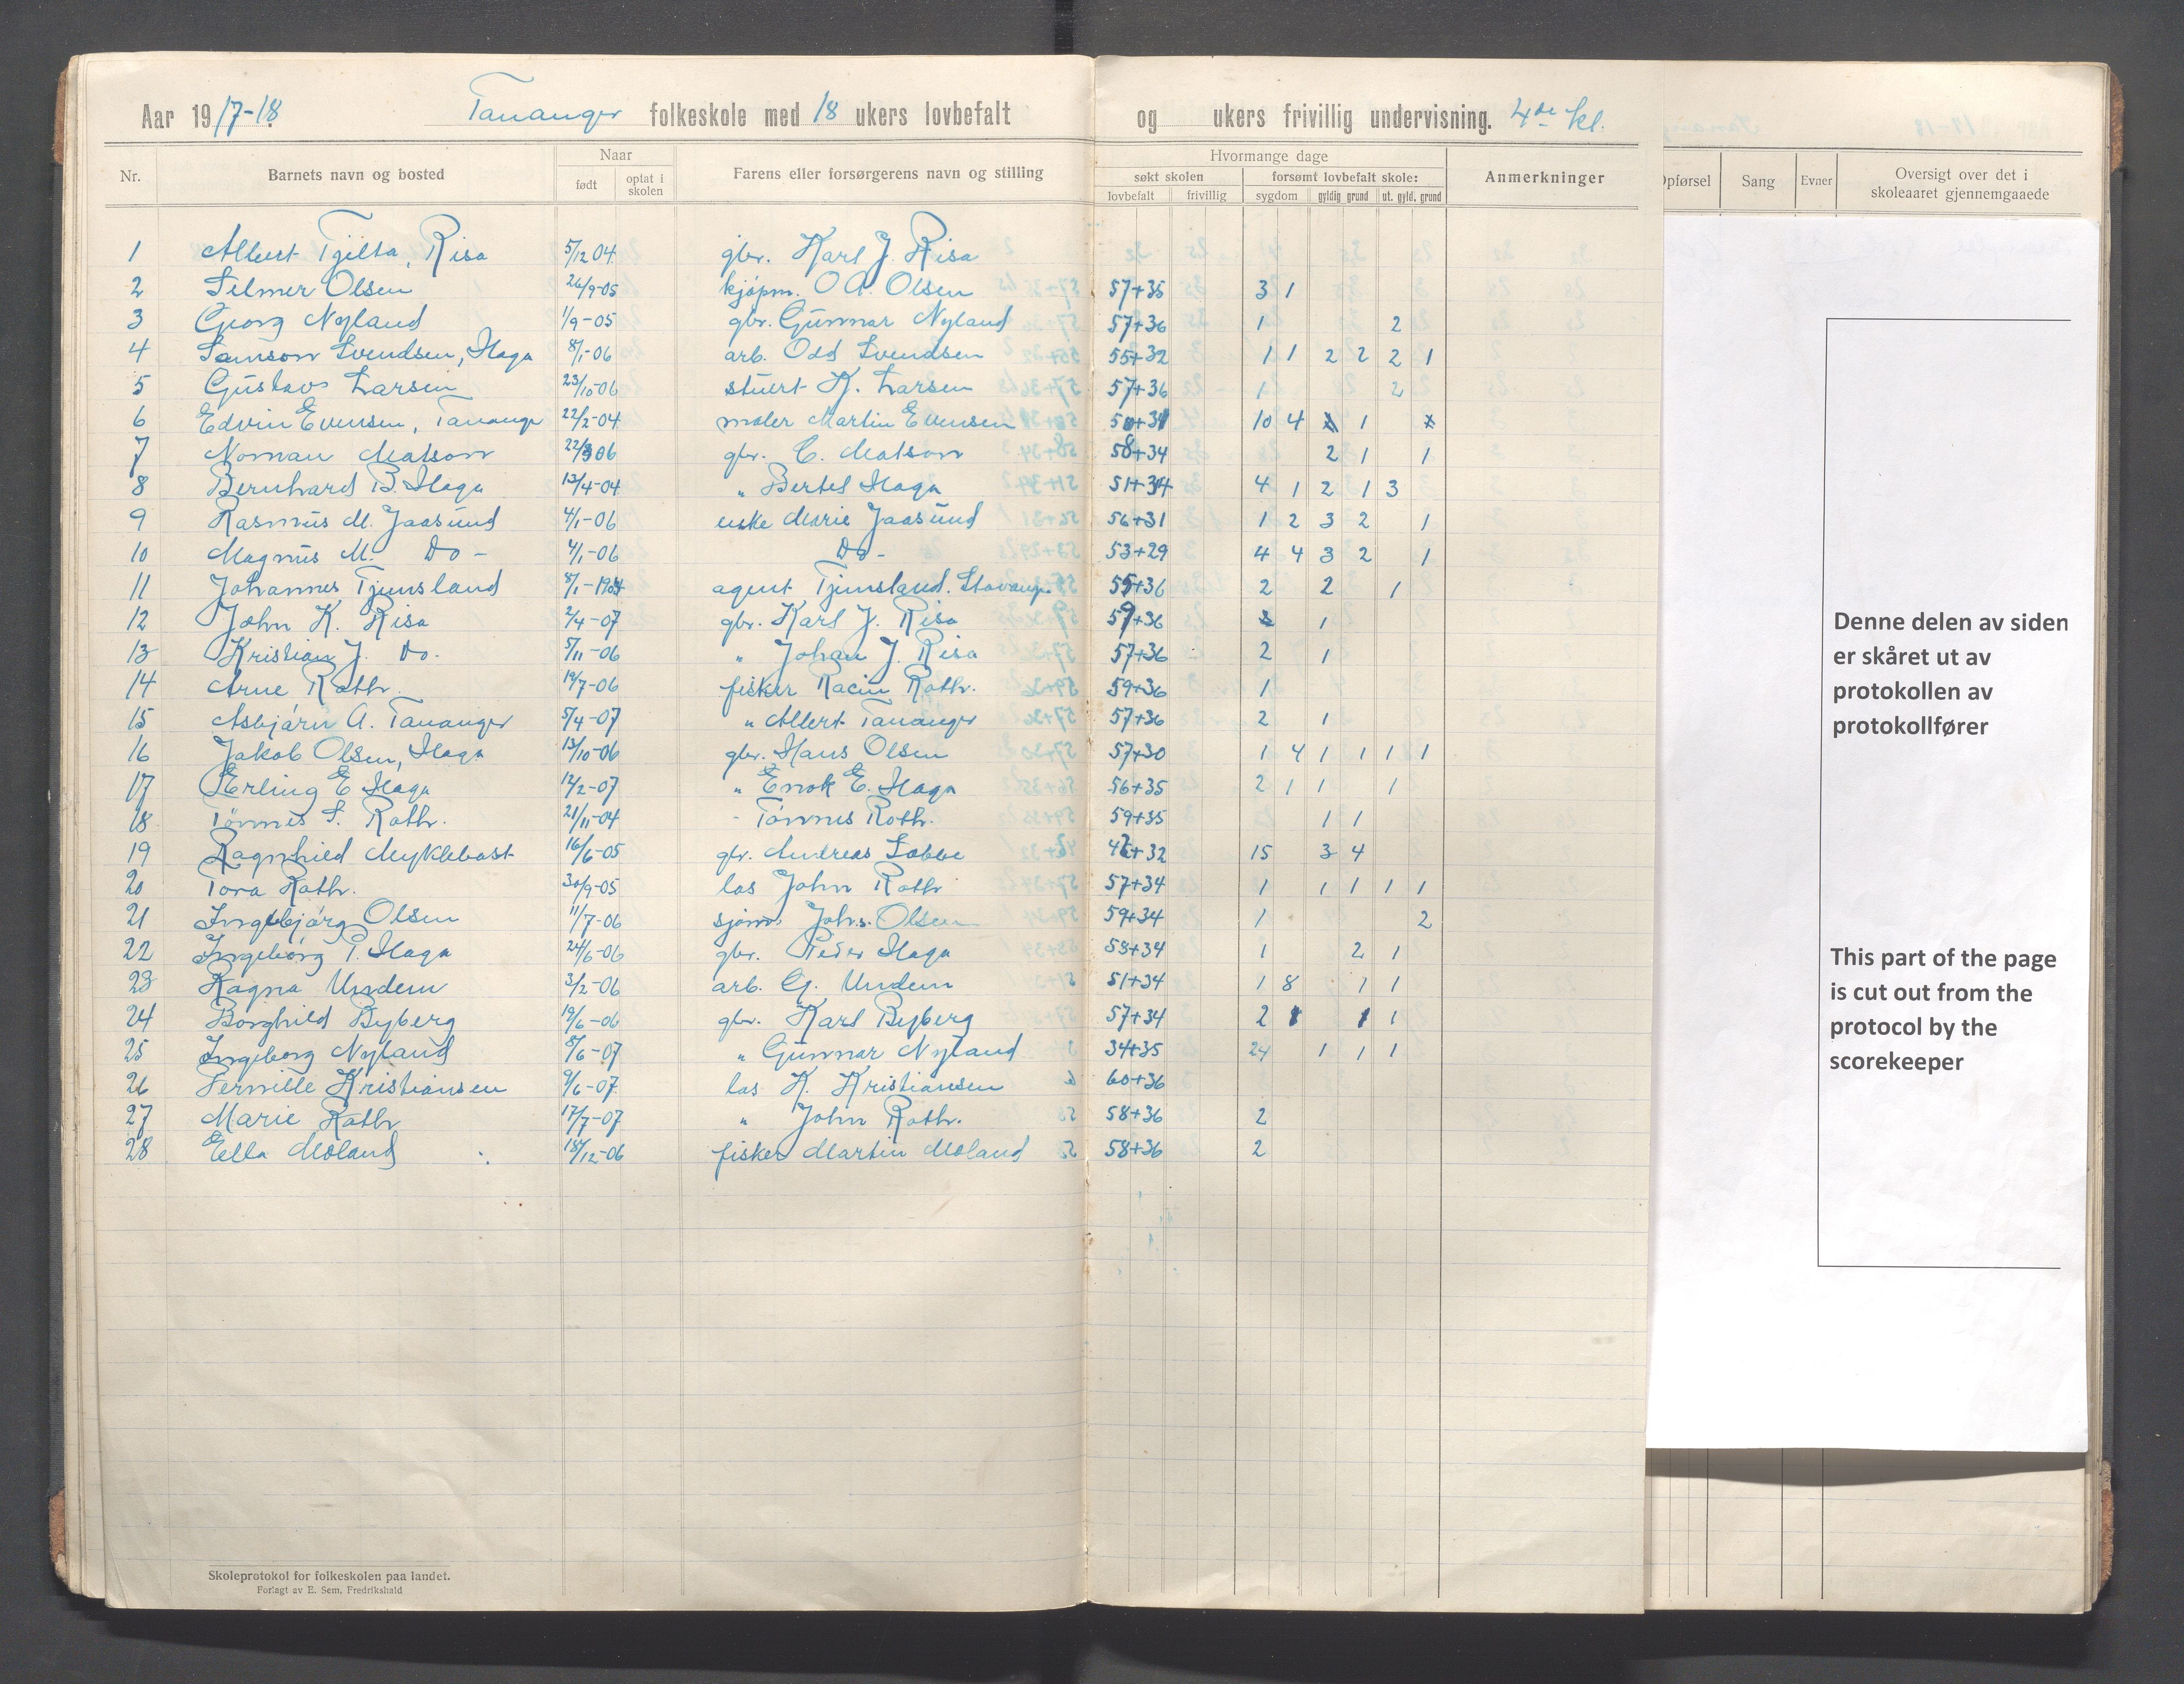 Aar 1917-18. Tananger folkeskole med 18 ukers lovbefalt og ukers frivillig undervisning. 4de kl.
Nr. Barnets navn og bosted Naar født optat i skolen Farens eller forsørgerens navn og stilling Hvormange dage søkt skolen lovbefalt frivillig forsømt lovbefalt skole: sygdom gyldig grund ut. gyld. grund Anmerkninger
Opførsel Sang Evner Oversigt over det i skoleaaret gjennemgaaede
1 Albert Tjilta, Risa 5/12 04. gbr. Karl J. Risa
2 Selmer Olsen 26/9-05 kjøpm. O A. Olsen 57+35 3 1
3 Georg Nyland 1/9-05 gbr. Gunnar Nyland 57+36 1 2
4 Samson Svendsen, Haga 8/1-06 arb. Odd Svendsen 55+32 1 1 2 2 2 1
5 Gustav Larsen 23/10-06 stuert K. Larsen 57+36 1 2
6 Edvin Evensen, Tananger 22/2-04 maler Martin Evensen 10 4 1
7 Norman Matson gbr. C. Matson 58+34 2 1 1
8 Bernhard B. Haga 13/4-04 " Bertel Haga 51+34 4 1 2 1 3
9 Rasmus M. Jaasund 4/1-06 enke Marie Jaasund 56+31 1 2 3 2 1
10 Magnus M. Do - 4/1-06 Do - 53+29 4 4 3 2 1
11 Johannes Tjemsland 8/1-1904 agent Tjemsland. Stavanger 55+36 2 2 1
12 John K. Risa 2/4-07 gbr. Karl J. Risa 59+36 1
13 Kristian J. Do. 5/11-06 " Johan J. Risa 57+36 2 1
14 Arne Rothr. 19/7-06 fisker Racin Rothr. 59+36 1
15 Asbjørn A. Tananger 5/4-07 " Albert Tananger 57+36 2 1
16 Jakob Olsen, Haga 13/10-06 gbr. Hans Olsen 57+30 1 4 1 1 1 1
17 Erling E Haga 12/2-07 " Enok E. Haga 56+35 2 1 1 1
18 Tønnes S. Rothr. 21/11-04 - Tønnes Rothr. 59+35 1 1
19 Ragnhild Myklebost 16/6-05 gbr. Andreas Sobbe 15 3 4
20 Tora Rothr. 30/9-05 los John Rothr 57+34 1 1 1 1 1
21 Ingebjørg Olsen 11/7-06 sjøm. Johs. Olsen 59+34 1 2
22 Ingeborg P. Haga 24/6-06 gbr. Peder Haga 58+34 1 2 1
23 Ragna Undem 3/2-06 arb. G. Undem 51+34 1 8 1 1
24 Borghild Byberg 19/6-06 gbr. Karl Byberg 57+34 2 1 1 1
25 Ingeborg Nyland 8/6-07 " Gunnar Nyland 34+35 24 1 1 1
26 Pernille Kristiansen 9/6-07. los K. Kristiansen 60+36
27 Marie Rothr 17/7-07 " John Rothr. 58+36 2
28 Ella Moland 18/12-06 fisker Martin Moland 58+36 2
Denne delen av siden
er skåret ut av
protokollen av
protokollfører
This part of the page
is cut out from the
protocol by the
scorekeeper
Skoleprotokol for folkeskolen paa landet.
Forlagt av E. Sem, Fredrikshald